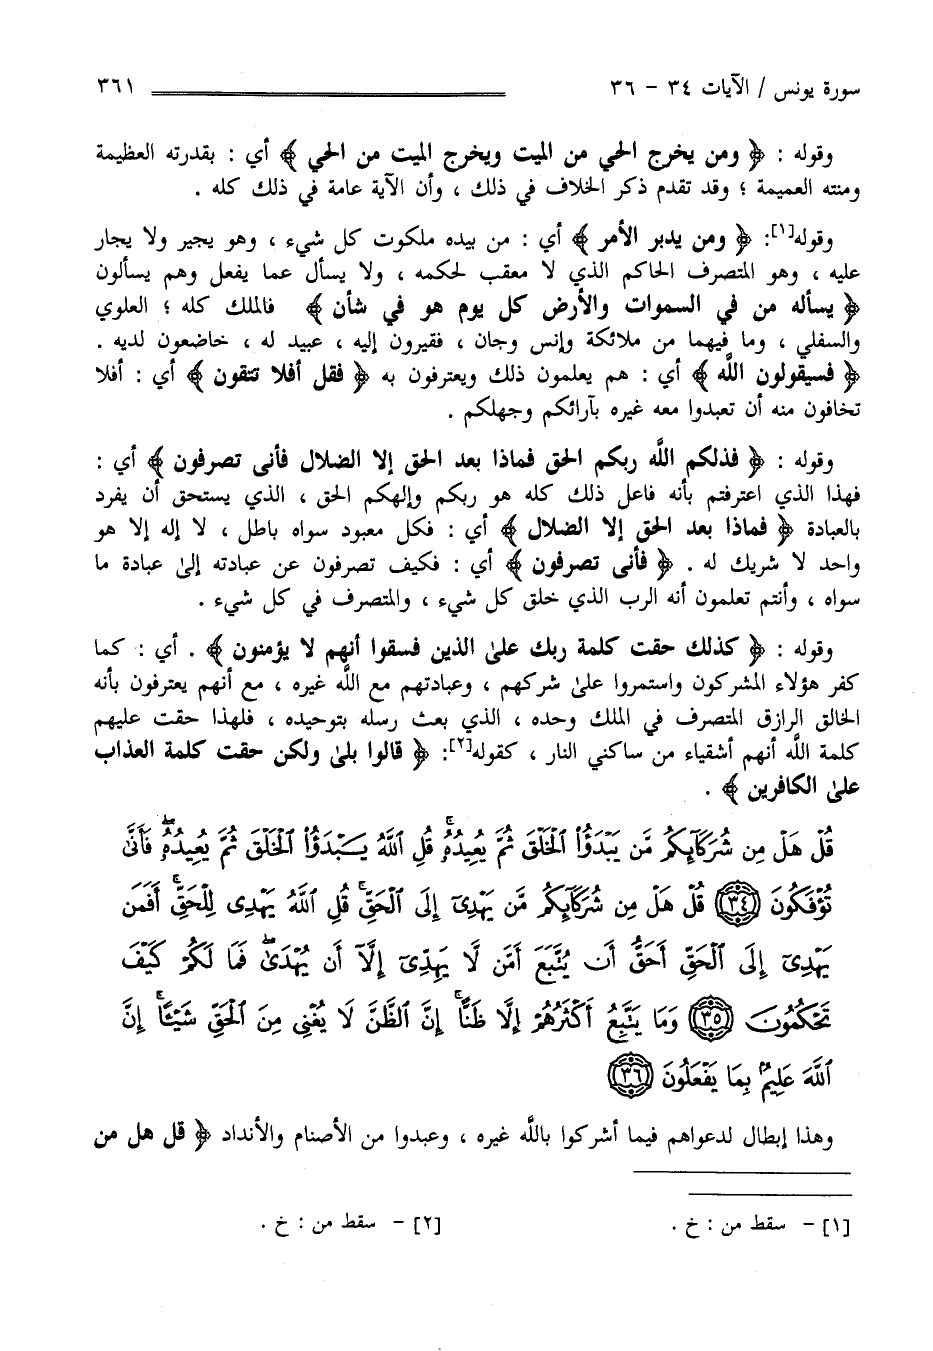 سورة يونس / الآيات ٣٤ - ٣٦ ٣٦١
وقوله : ﴿ ومن يخرج الحي من الميت ويخرج الميت من الحي ﴾ أي : بقدرته العظيمة
ومنته العميمة ؛ وقد تقدم ذكر الخلاف في ذلك ، وأن الآية عامة في ذلك كله .
وقوله[١]: ﴿ ومن يدبر الأمر ﴾ أي : من بيده ملكوت كل شيء ، وهو يجير ولا يجار
عليه ، وهو المتصرف الحاكم الذي لا معقب لحكمه ، ولا يسأل عما يفعل وهم يسألون
﴿ يسأله من في السموات والأرض كل يوم هو في شأن ﴾ فالملك كله ؛ العلوي
والسفلي ، وما فيهما من ملائكة وإنس وجان ، فقيرون إليه ، عبيد له ، خاضعون لديه .
﴿ فسيقولون اللَّه ﴾ أي : هم يعلمون ذلك ويعترفون به ﴿ فقل أفلا تتقون ﴾ أي : أفلا
تخافون منه أن تعبدوا معه غيره بآرائكم وجهلكم .
وقوله : ﴿ فذلكم اللَّه ربكم الحق فماذا بعد الحق إلا الضلال فأنى تصرفون ﴾ أي :
فهذا الذي اعترفتم بأنه فاعل ذلك كله هو ربكم وإلهكم الحق ، الذي يستحق أن يفرد
بالعبادة ﴿ فماذا بعد الحق إلا الضلال ﴾ أي : فكل معبود سواه باطل ، لا إله إلا هو
واحد لا شريك له . ﴿ فأنى تصرفون ﴾ أي : فكيف تصرفون عن عبادته إلىٰ عبادة ما
سواه ، وأنتم تعلمون أنه الرب الذي خلق كل شيء ، والمتصرف في كل شيء .
وقوله : ﴿ كذلك حقت كلمة ربك علىٰ الذين فسقوا أنهم لا يؤمنون ﴾ . أي : كما
كفر هؤلاء المشركون واستمروا علىٰ شركهم ، وعبادتهم مع اللَّه غيره ، مع أنهم يعترفون بأنه
الخالق الرازق المتصرف في الملك وحده ، الذي بعث رسله بتوحيده ، فلهذا حقت عليهم
كلمة اللَّه أنهم أشقياء من ساكني النار ، كقوله[٢]: ﴿ قالوا بلىٰ ولكن حقت كلمة العذاب
علىٰ الكافرين ﴾ .
قُلْ هَلْ مِن شُرَكَآئِكُم مَّن يَبْدَؤُا۟ الْخَلْقَ ثُمَّ يُعِيدُهُۥ ۚ قُلِ ٱللَّهُ يَبْدَؤُا۟ الْخَلْقَ ثُمَّ يُعِيدُهُۥ ۖ فَأَنَّىٰ
تُؤْفَكُونَ ٣٤ قُلْ هَلْ مِن شُرَكَآئِكُم مَّن يَهْدِىٓ إِلَى ٱلْحَقِّ ۚ قُلِ ٱللَّهُ يَهْدِى لِلْحَقِّ ۗ أَفَمَن
يَهْدِىٓ إِلَى ٱلْحَقِّ أَحَقُّ أَن يُتَّبَعَ أَمَّن لَّا يَهِدِّىٓ إِلَّآ أَن يُهْدَىٰ ۖ فَمَا لَكُمْ كَيْفَ
تَحْكُمُونَ ٣٥ وَمَا يَتَّبِعُ أَكْثَرُهُمْ إِلَّا ظَنًّا ۚ إِنَّ ٱلظَّنَّ لَا يُغْنِى مِنَ ٱلْحَقِّ شَيْـًٔا ۚ إِنَّ
ٱللَّهَ عَلِيمٌۢ بِمَا يَفْعَلُونَ ٣٦
وهذا إبطال لدعواهم فيما أشركوا باللَّه غيره ، وعبدوا من الأصنام والأنداد ﴿ قل هل من
[١] - سقط من : خ . [٢] - سقط من : خ .